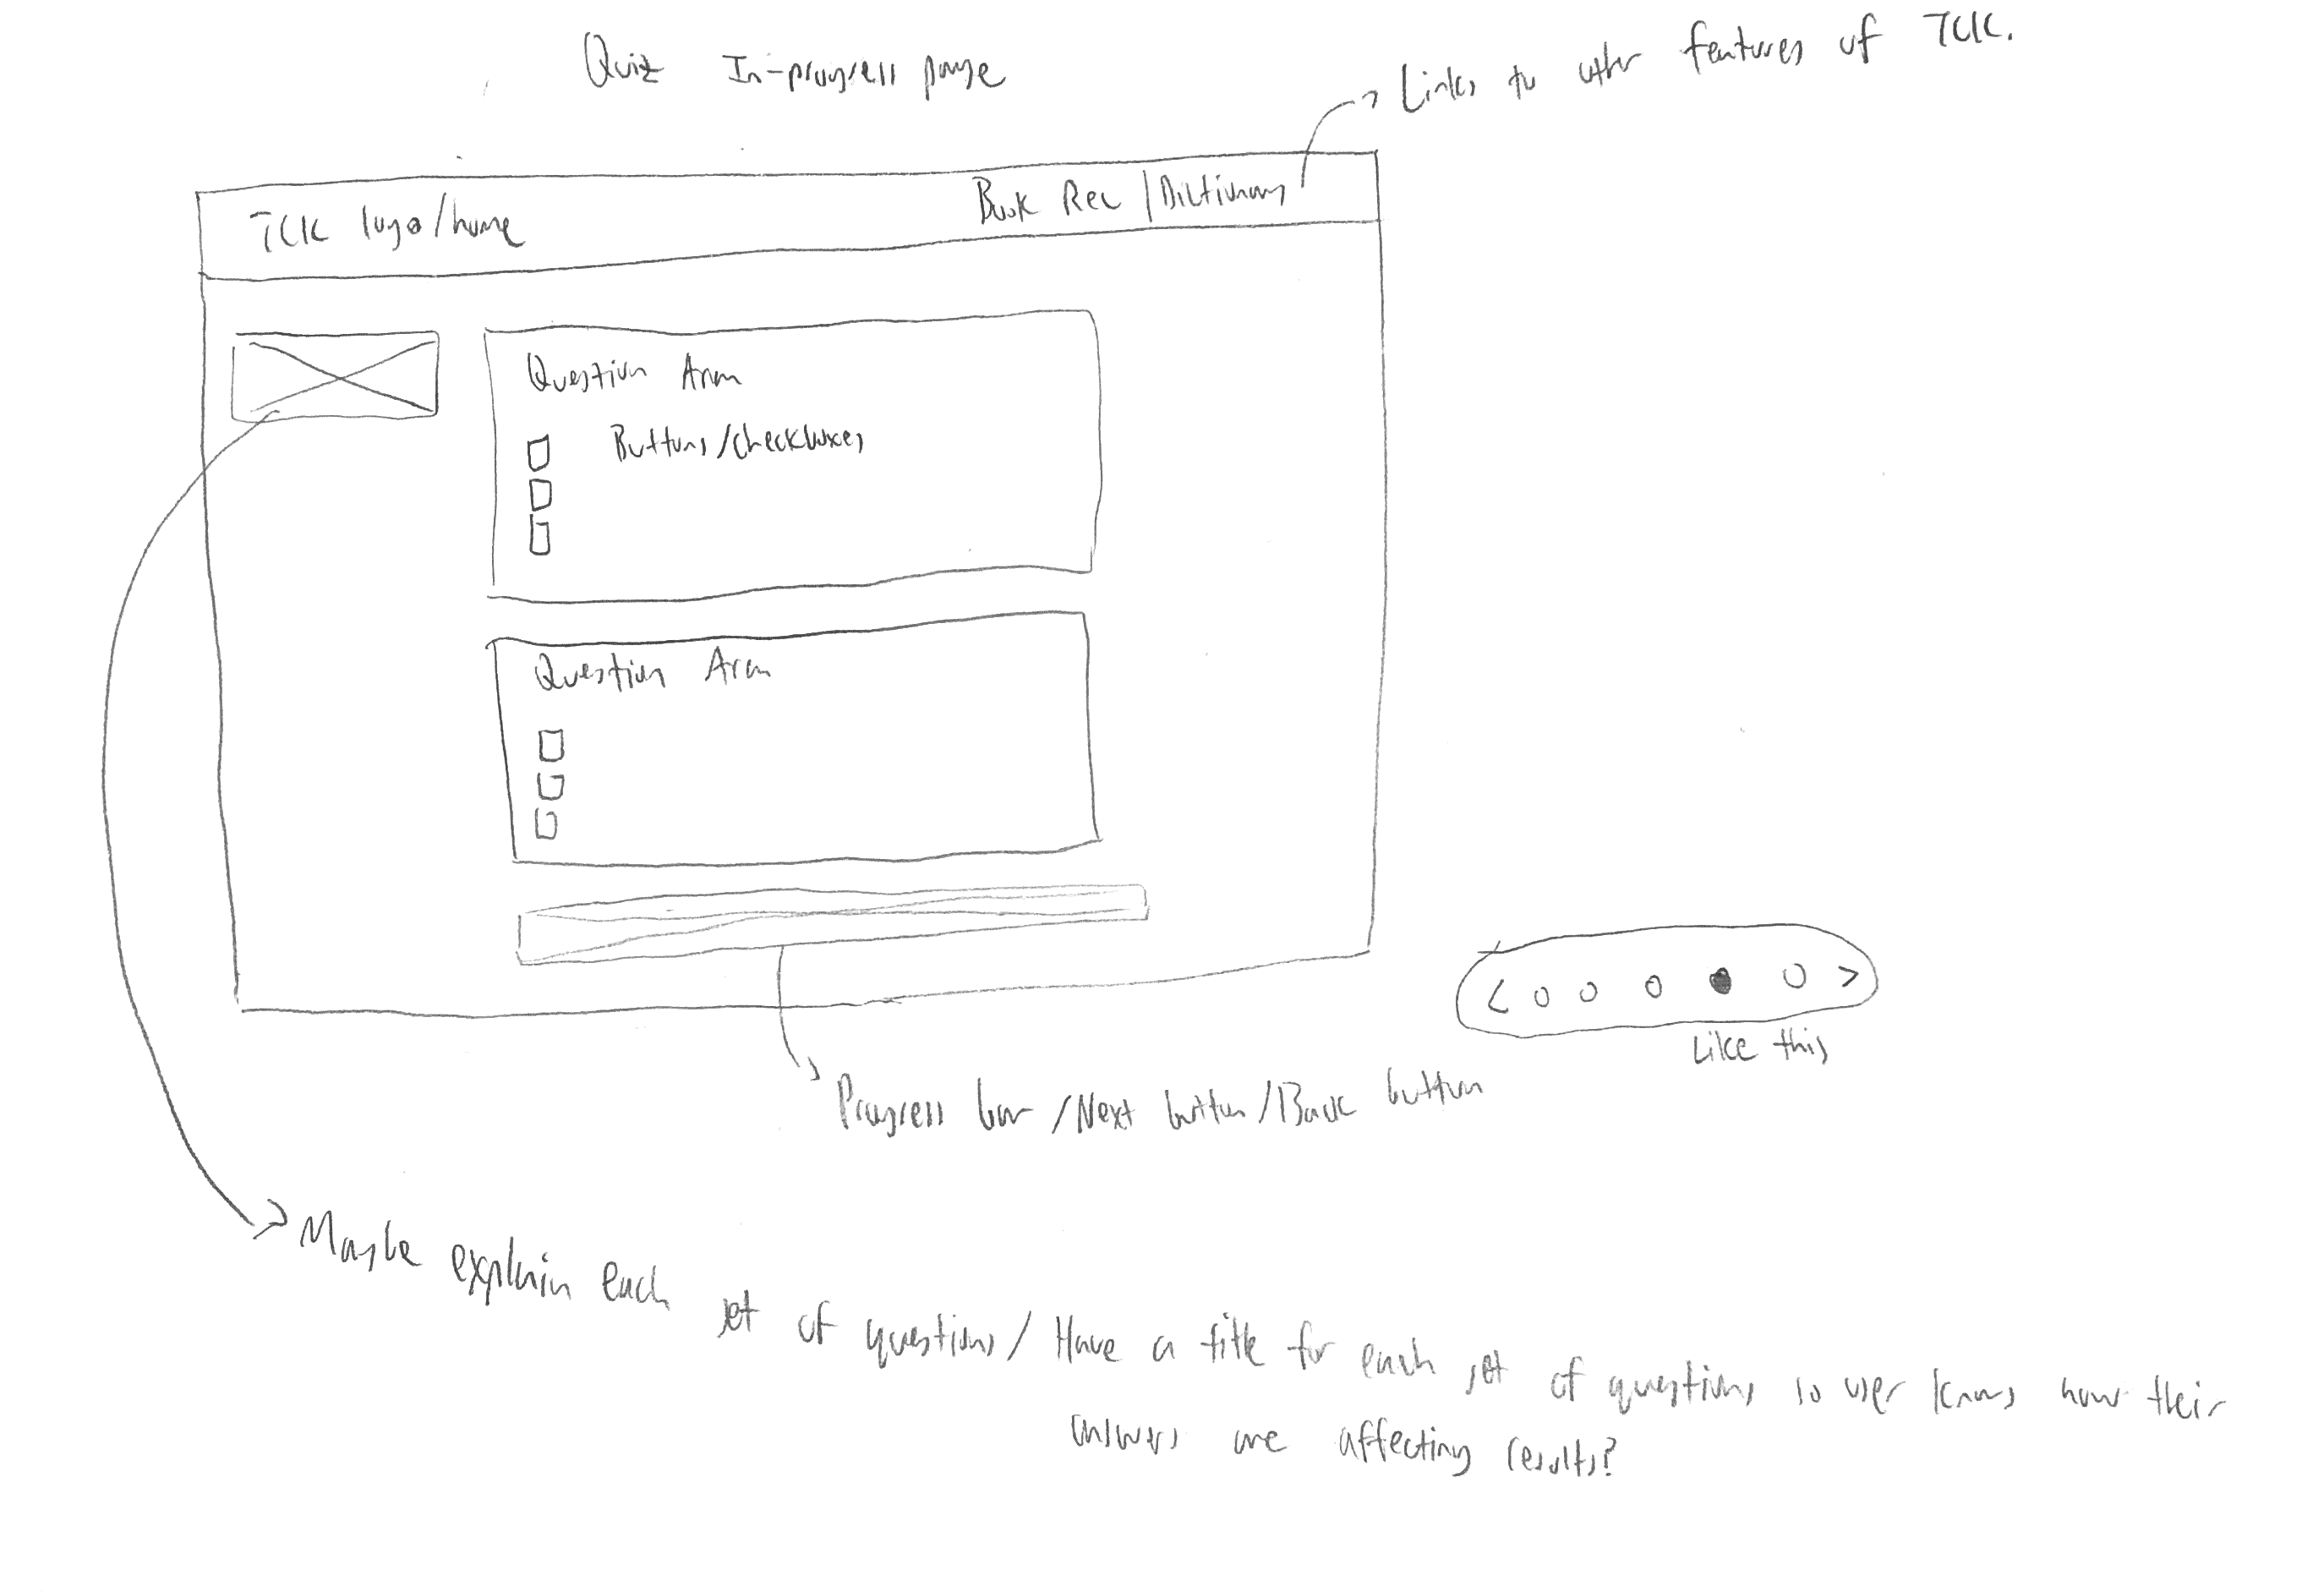 Quiz In-progress page
Links to other features of TCK.
TCK logo/home
Book Rec | Dictionary
Question Area
Buttons/checkboxes
Question Area
< O O O ● O >
Like this
Progress bar/Next button/Back button
Maybe explain each set of questions/Have a title for each set of questions so user knows how their
answers are affecting results?